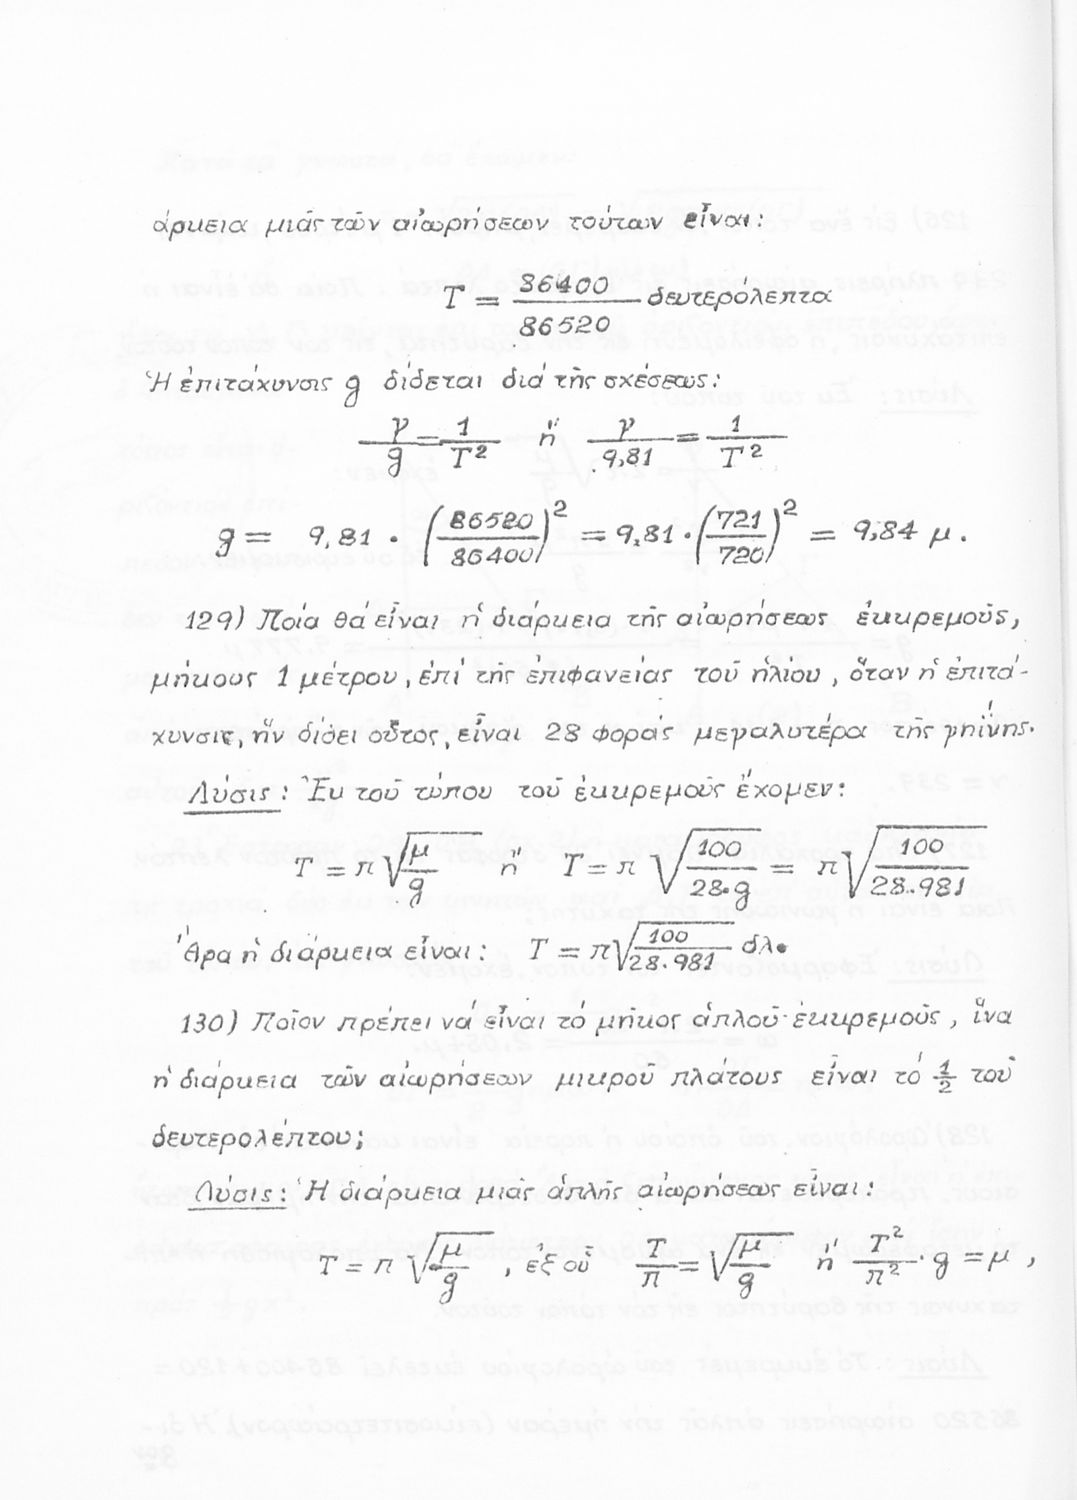 άρκεια μιᾶς τῶν αἰωρήσεων τούτων εἶναι:
T = 86400/86520 δευτερόλεπτα
Ἡ ἐπιτάχυνσις g δίδεται διά τῆς σχέσεως:
γ/g = 1/T² ἤ γ/9,81 = 1/T²
g = 9,81 · (86520/86400)² = 9,81 · (721/720)² = 9,84 μ.
129) Ποία θά εἶναι ἡ διάρκεια τῆς αἰωρήσεως ἐκκρεμοῦς,
μήκους 1 μέτρου, ἐπί τῆς ἐπιφανείας τοῦ ἡλίου, ὅταν ἡ ἐπιτά-
χυνσις, ἥν δίδει οὗτος, εἶναι 28 φοράς μεγαλυτέρα τῆς γηΐνης.
Λύσις: Ἐκ τοῦ τύπου τοῦ ἐκκρεμοῦς ἔχομεν:
T = π √(μ/g) ἤ T = π √(100/28·g) = π √(100/28..981)
Ἄρα ἡ διάρκεια εἶναι: T = π √(100/28.981) δλ.
130) Ποῖον πρέπει νά εἶναι τό μῆκος ἁπλοῦ ἐκκρεμοῦς, ἵνα
ἡ διάρκεια τῶν αἰωρήσεων μικροῦ πλάτους εἶναι τό 1/2 τοῦ
δευτερολέπτου;
Λύσις: Ἡ διάρκεια μιᾶς ἁπλῆς αἰωρήσεως εἶναι:
T = π √(μ/g) , ἐξ οὗ T/π = √(μ/g) ἤ T²/π² · g = μ ,